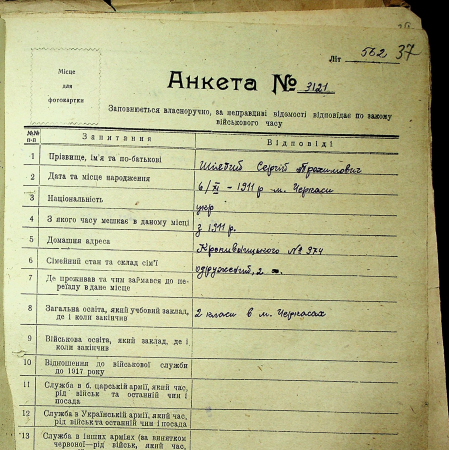 Місце
для
фотокартки
Літ 562 37
Анкета № 3121
Заповнюється власноручно, за неправдиві відомості відповідає по закону
військового часу
№№ п-п Запитання Відповіді
1 Прізвище, ім'я та по-батькові Сергій Трохимович
2 Дата та місце народження 6/XI – 1911 р м. Черкаси
3 Національність укр
4 З якого часу мешкає в даному місці з 1911 р.
5 Домашня адреса Кропивницького № 374
6 Сімейний стан та склад сім'ї одружений, 2
7 Де проживав та чим займався до пе-
реїзду в дане місце
8 Загальна освіта, який учбовий заклад,
де і коли закінчив 2 класи в м. Черкасах
9 Військова освіта, який заклад, де і
коли закінчив
10 Відношення до військової служби
до 1917 року
11 Служба в б. царській армії, який час,
рід військ та останній чин і
посада
12 Служба в Українській армії, який час,
рід військ та останній чин і посада
13 Служба в інших арміях (за винятком
червоної—рід військ, який час,